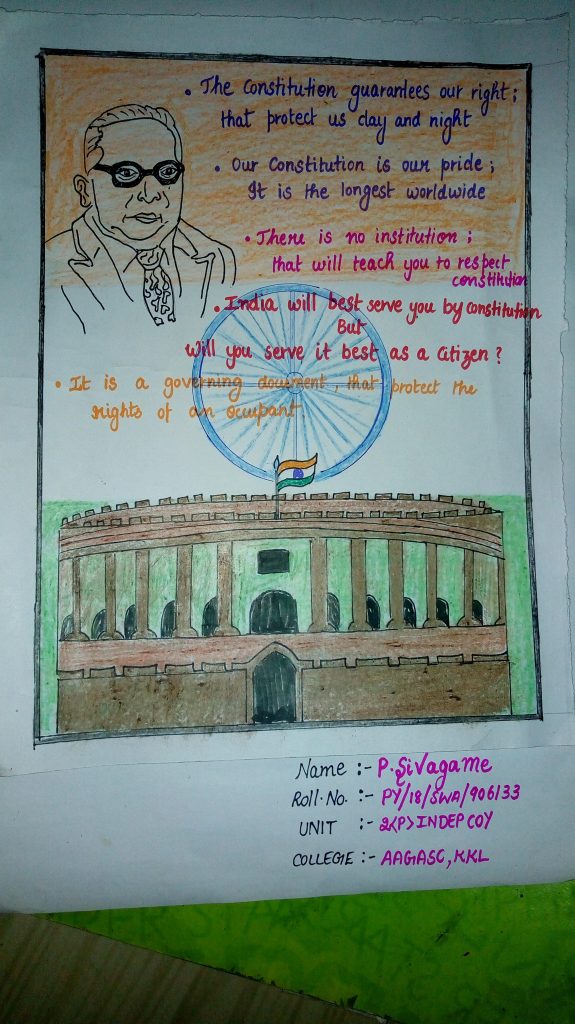 • The Constitution guarantees our right ;
that protect us day and night
• Our Constitution is our pride ;
It is the longest worldwide
• There is no institution ;
that will teach you to respect
constitution
• India will best serve you by constitution
But
Will you serve it best as a citizen ?
• It is a governing document, that protect the
rights of an occupant
Name :- P. Sivagame
Roll. No. :- PY/18/SWA/906133
UNIT :- 2(P) INDEP COY
COLLEGE :- AAGASC, KKL